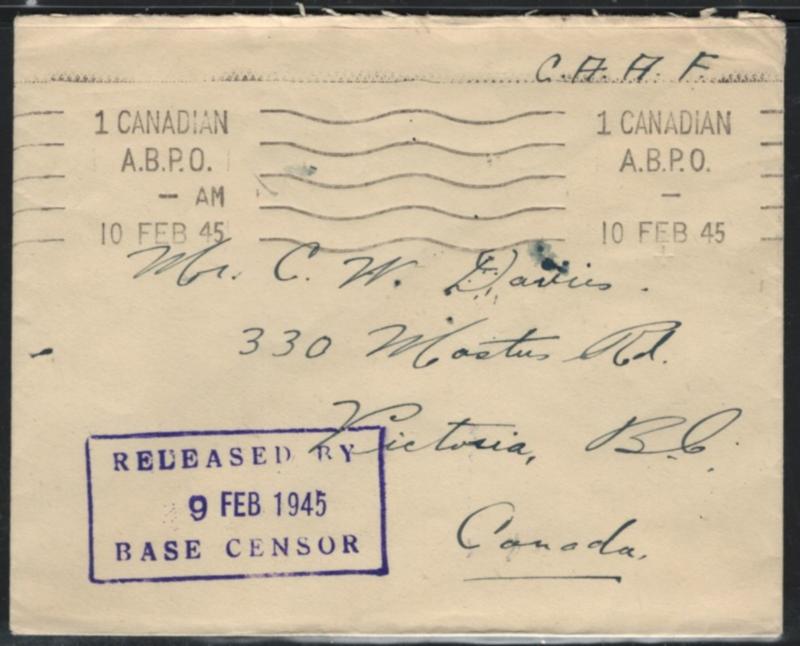 C.A.A.F.
1 CANADIAN
A.B.P.O.
- AM
10 FEB 45
1 CANADIAN
A.B.P.O.
-
10 FEB 45
Mr. C. W. Davies.
330 Rd.
Victoria, B.C.
Canada.
RELEASED BY
9 FEB 1945
BASE CENSOR